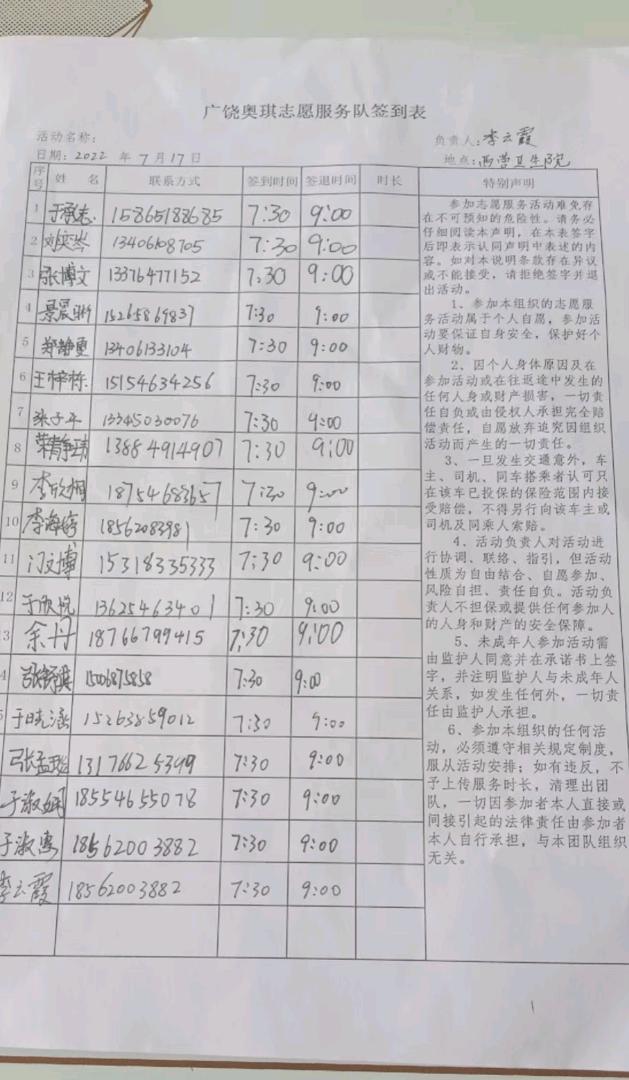 广饶奥琪志愿服务队签到表
活动名称： 负责人：李云霞
日期：2022 年 7 月 17 日 地点：西营卫生院
序号 姓 名 联系方式 签到时间 签退时间 时长 特别声明
1 于承志 15865188685 7:30 9:00
2 刘奕岑 13406108705 7:30 9:00
3 张博文 13376477152 7:30 9:00
4 景震 15265869837 7:30 9:00
5 郑静 13406133104 7:30 9:00
6 王梓栋 15154634256 7:30 9:00
7 张子平 13345030076 7:30 9:00
8 荣静琦 13884914907 7:30 9:00
9 李欣桐 18754683657 7:30 9:00
10 李海 18562083981 7:30 9:00
11 门文博 15318335333 7:30 9:00
12 于欣悦 13625463401 7:30 9:00
3 余丹 18766799415 7:30 9:00
4 张 15006875858 7:30 9:00
5 于晓涵 15263859012 7:30 9:00
张孟 13176625399 7:30 9:00
于淑娟 18554655078 7:30 9:00
于淑惠 18562003882 7:30 9:00
李云霞 18562003882 7:30 9:00
参加志愿服务活动难免存
在不可预知的危险性。请务必
仔细阅读本声明，在本表签字
后即表示认同声明中表述的内
容。如对本说明条款存在异议
或不能接受，请拒绝签字并退
出活动。
1、参加本组织的志愿服
务活动属于个人自愿，参加活
动要保证自身安全，保护好个
人财物。
2、因个人身体原因及在
参加活动或在往返途中发生的
任何人身或财产损害，一切责
任自负或由侵权人承担完全赔
偿责任，自愿放弃追究因组织
活动而产生的一切责任。
3、一旦发生交通意外，车
主、司机、同车搭乘者认可只
在该车已投保的保险范围内接
受赔偿，不得另行向该车主或
司机及同乘人索赔。
4、活动负责人对活动进
行协调、联络、指引，但活动
性质为自由结合、自愿参加、
风险自担、责任自负。活动负
责人不担保或提供任何参加人
的人身和财产的安全保障。
5、未成年人参加活动需
由监护人同意并在承诺书上签
字，并注明监护人与未成年人
关系，如发生任何外，一切责
任由监护人承担。
6、参加本组织的任何活
动，必须遵守相关规定制度，
服从活动安排；如有违反，不
予上传服务时长，清理出团
队，一切因参加者本人直接或
间接引起的法律责任由参加者
本人自行承担，与本团队组织
无关。
1